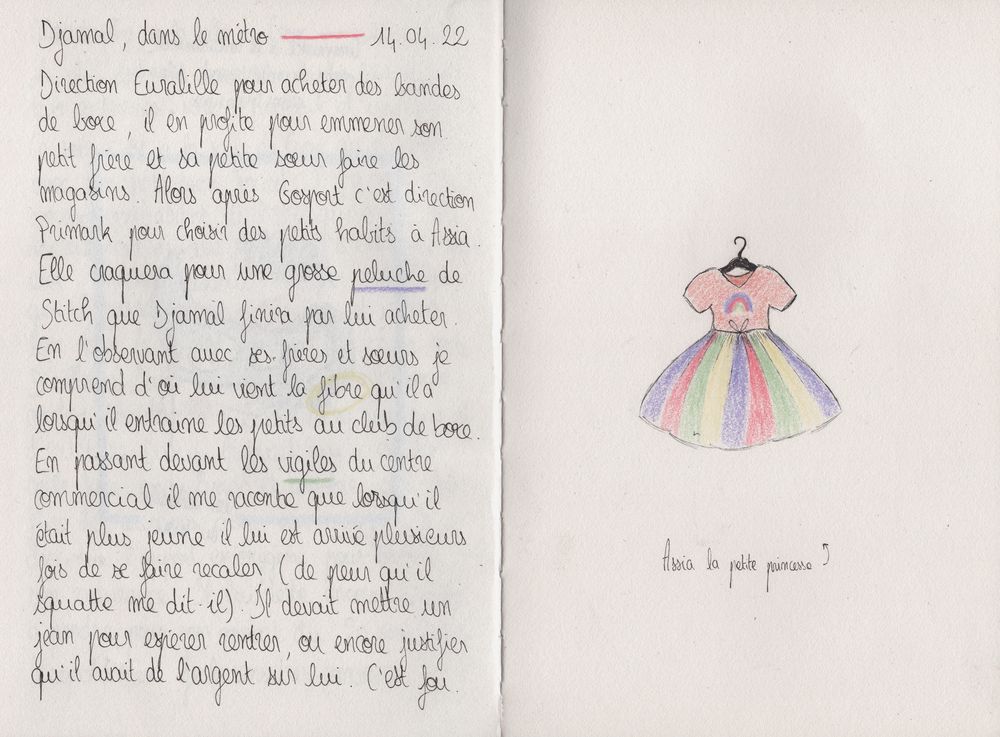 Djamal, dans le métro 14.04.22
Direction Euralille pour acheter des bandes
de boxe, il en profite pour emmener son
petit frère et sa petite sœur faire les
magasins. Alors après Gosport c'est direction
Primark pour choisir des petits habits à Assia.
Elle craquera pour une grosse peluche de
Stitch que Djamal finira par lui acheter.
En l'observant avec ses frères et sœurs je
comprend d'où lui vient la fibre qu'il a
lorsqu'il entraine les petits au club de boxe.
En passant devant les vigiles du centre
commercial il me raconte que lorsqu'il
était plus jeune il lui est arrivé plusieurs
fois de se faire recaler (de peur qu'il
squatte me dit-il). Il devait mettre un
jean pour espérer rentrer, ou encore justifier
qu'il avait de l'argent sur lui. C'est fou.
Assia la petite princesse